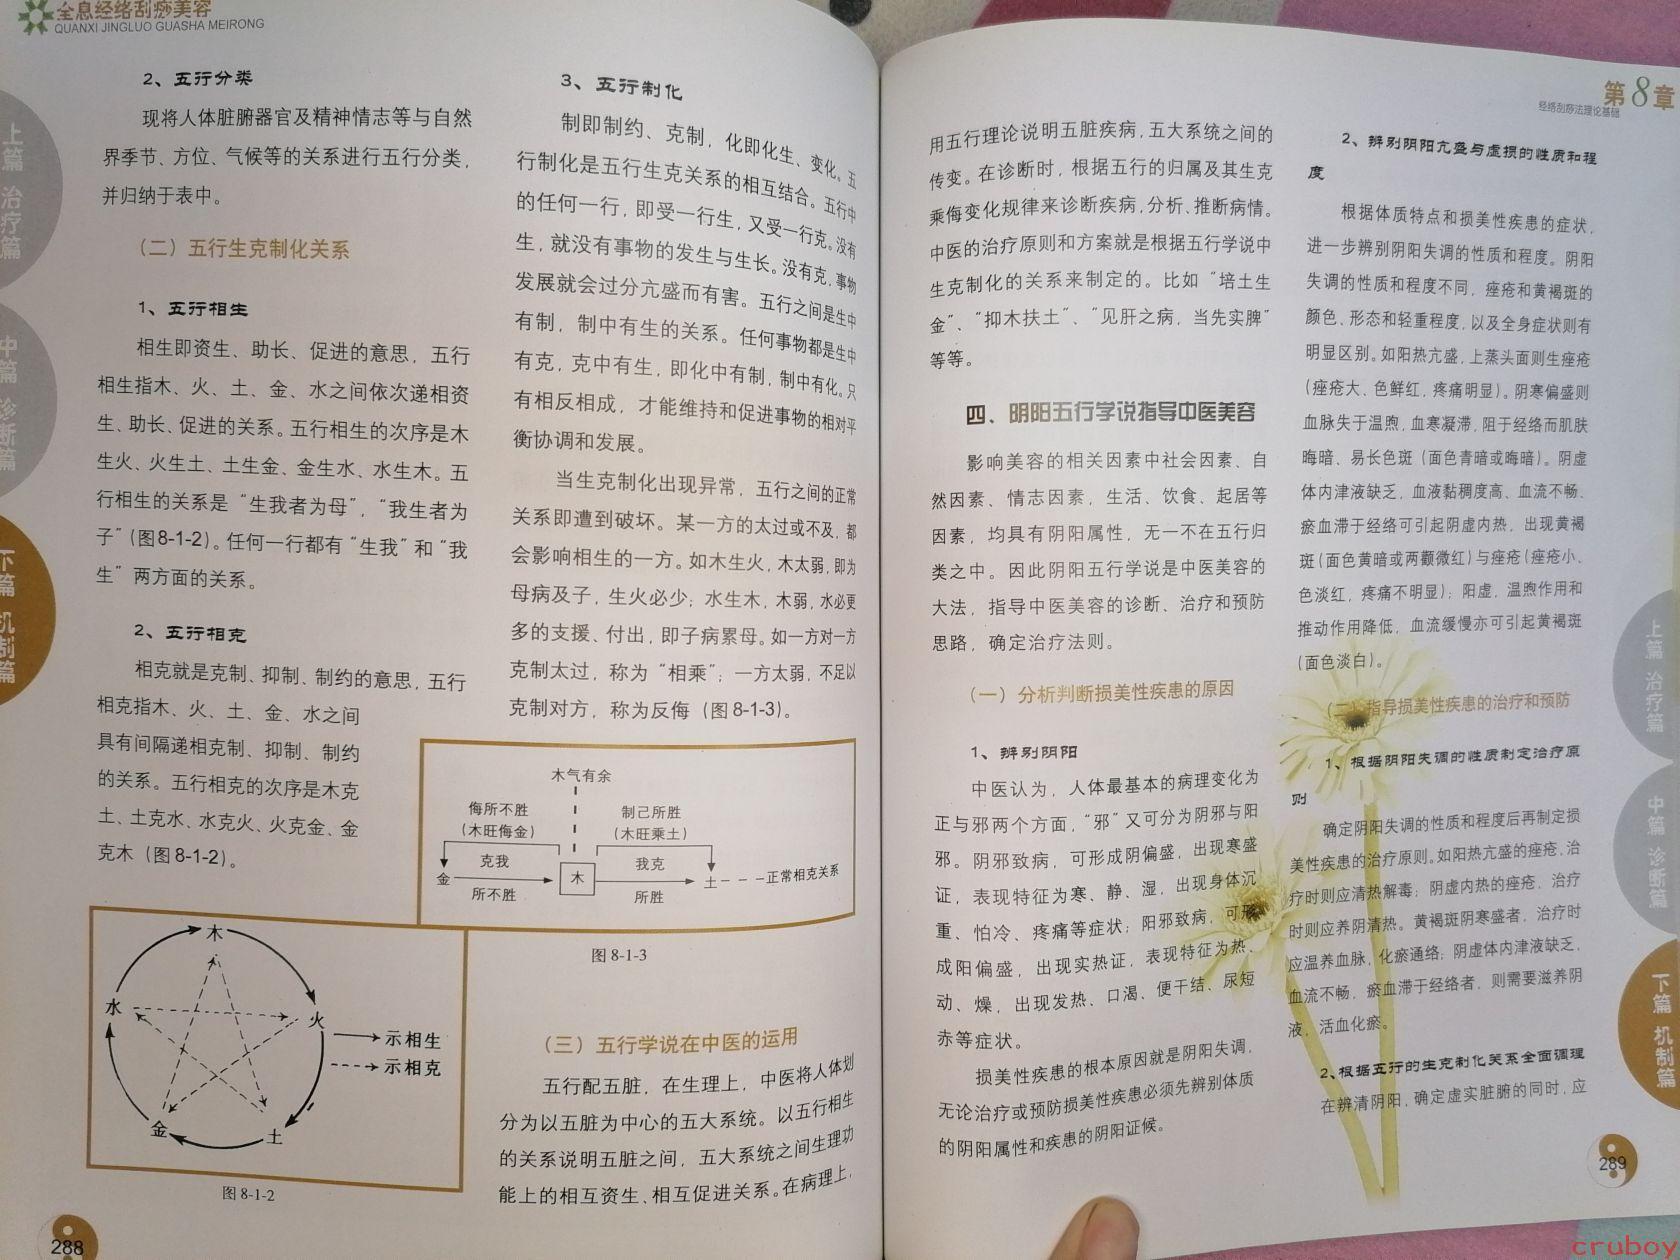 全息经络刮痧美容
QUANXI JINGLUO GUASHA MEIRONG
上篇 治疗篇
中篇 诊断篇
下篇 机制篇
2、五行分类
现将人体脏腑器官及精神情志等与自然
界季节、方位、气候等的关系进行五行分类，
并归纳于表中。
（二）五行生克制化关系
1、五行相生
相生即资生、助长、促进的意思，五行
相生指木、火、土、金、水之间依次递相资
生、助长、促进的关系。五行相生的次序是木
生火、火生土、土生金、金生水、水生木。五
行相生的关系是“生我者为母”，“我生者为
子”（图8-1-2）。任何一行都有“生我”和“我
生”两方面的关系。
2、五行相克
相克就是克制、抑制、制约的意思，五行
相克指木、火、土、金、水之间
具有间隔递相克制、抑制、制约
的关系。五行相克的次序是木克
土、土克水、水克火、火克金、金
克木（图8-1-2）。
木
水
火
金
土
示相生
示相克
图 8-1-2
288
3、五行制化
制即制约、克制，化即化生、变化。五
行制化是五行生克关系的相互结合。五行中
的任何一行，即受一行生，又受一行克。没有
生，就没有事物的发生与生长。没有克，事物
发展就会过分亢盛而有害。五行之间是生中
有制，制中有生的关系。任何事物都是生中
有克，克中有生，即化中有制，制中有化。只
有相反相成，才能维持和促进事物的相对平
衡协调和发展。
当生克制化出现异常，五行之间的正常
关系即遭到破坏。某一方的太过或不及，都
会影响相生的一方。如木生火，木太弱，即为
母病及子，生火必少；水生木，木弱，水必更
多的支援、付出，即子病累母。如一方对一方
克制太过，称为“相乘”；一方太弱，不足以
克制对方，称为反侮（图8-1-3）。
木气有余
侮所不胜
（木旺侮金）
制己所胜
（木旺乘土）
克我
我克
金
木
土
正常相克关系
所不胜
所胜
图 8-1-3
（三）五行学说在中医的运用
五行配五脏，在生理上，中医将人体划
分为以五脏为中心的五大系统。以五行相生
的关系说明五脏之间，五大系统之间生理功
能上的相互资生、相互促进关系。在病理上，
第8章
经络刮痧法理论基础
用五行理论说明五脏疾病，五大系统之间的
传变。在诊断时，根据五行的归属及其生克
乘侮变化规律来诊断疾病，分析、推断病情。
中医的治疗原则和方案就是根据五行学说中
生克制化的关系来制定的。比如“培土生
金”、“抑木扶土”、“见肝之病，当先实脾”
等等。
四、阴阳五行学说指导中医美容
影响美容的相关因素中社会因素、自
然因素、情志因素，生活、饮食、起居等
因素，均具有阴阳属性，无一不在五行归
类之中。因此阴阳五行学说是中医美容的
大法，指导中医美容的诊断、治疗和预防
思路，确定治疗法则。
（一）分析判断损美性疾患的原因
1、辨别阴阳
中医认为，人体最基本的病理变化为
正与邪两个方面，“邪”又可分为阴邪与阳
邪。阴邪致病，可形成阴偏盛，出现寒盛
证，表现特征为寒、静、湿，出现身体沉
重、怕冷、疼痛等症状；阳邪致病，可形
成阳偏盛，出现实热证，表现特征为热、
动、燥，出现发热、口渴、便干结、尿短
赤等症状。
损美性疾患的根本原因就是阴阳失调，
无论治疗或预防损美性疾患必须先辨别体质
的阴阳属性和疾患的阴阳证候。
2、辨别阴阳亢盛与虚损的性质和程
度
根据体质特点和损美性疾患的症状，
进一步辨别阴阳失调的性质和程度。阴阳
失调的性质和程度不同，痤疮和黄褐斑的
颜色、形态和轻重程度，以及全身症状则有
明显区别。如阳热亢盛，上蒸头面则生痤疮
（痤疮大、色鲜红，疼痛明显）。阴寒偏盛则
血脉失于温煦，血寒凝滞，阻于经络而肌肤
晦暗、易长色斑（面色青暗或晦暗）。阴虚
体内津液缺乏，血液黏稠度高、血流不畅、
瘀血滞于经络可引起阴虚内热，出现黄褐
斑（面色黄暗或两颧微红）与痤疮（痤疮小、
色淡红，疼痛不明显）；阳虚，温煦作用和
推动作用降低，血流缓慢亦可引起黄褐斑
（面色淡白）。
（二）指导损美性疾患的治疗和预防
1、根据阴阳失调的性质制定治疗原
则
确定阴阳失调的性质和程度后再制定损
美性疾患的治疗原则。如阳热亢盛的痤疮，治
疗时则应清热解毒；阴虚内热的痤疮，治疗
时则应养阴清热。黄褐斑阴寒盛者，治疗时
应温养血脉，化瘀通络；阴虚体内津液缺乏，
血流不畅，瘀血滞于经络者，则需要滋养阴
液，活血化瘀。
2、根据五行的生克制化关系全面调理
在辨清阴阳，确定虚实脏腑的同时，应
上篇 治疗篇
中篇 诊断篇
下篇 机制篇
289
cruboy